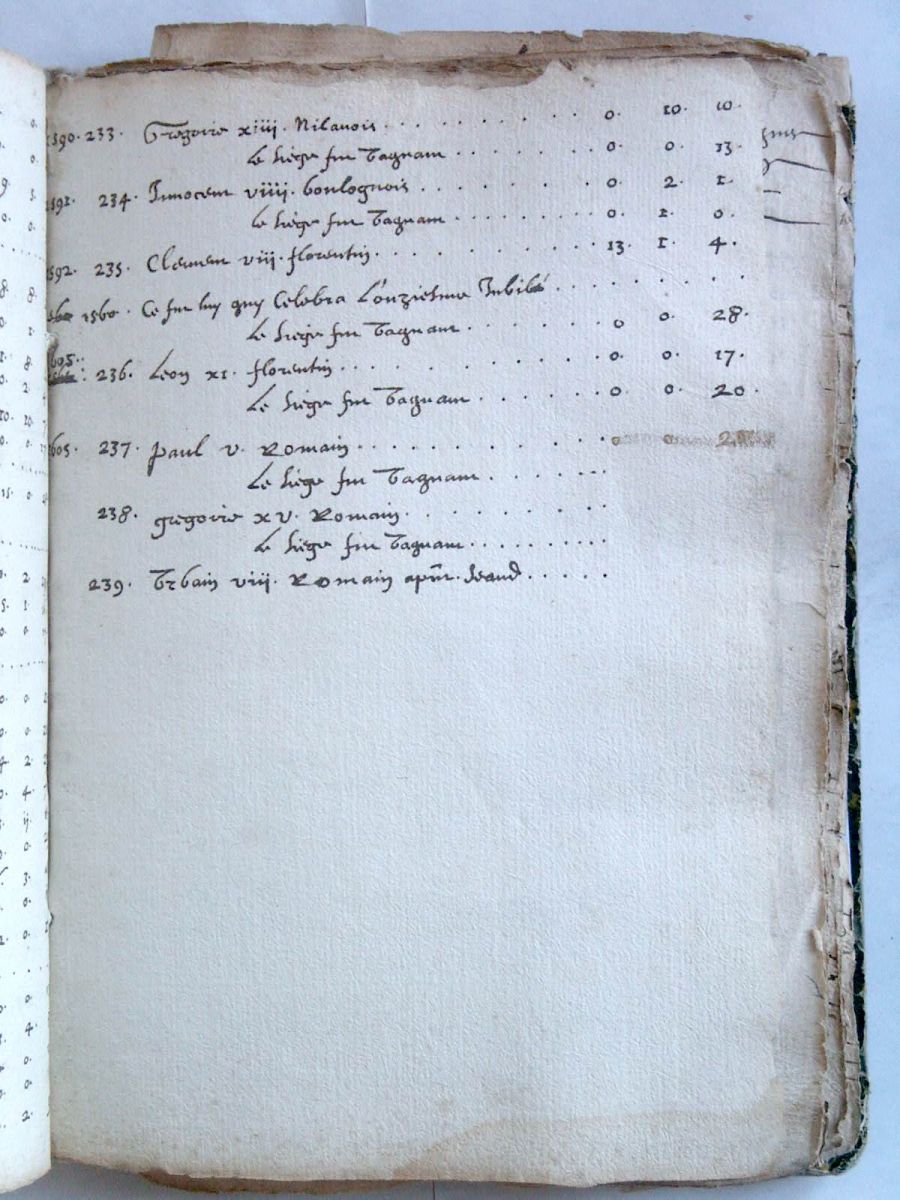 1590. 233. Gregoire xiiii. Milanois . . . . . . . . 0. 10. 10.
Le siège fut vaquant . . . . . . 0. 0. 13.
1591. 234. Innocent viiii. boulognois . . . . . . . 0. 2. 1.
Le siège fut vaquant . . . . . . 0. 1. 0.
1592. 235. Clement viii. florentin . . . . . . . . 13. 1. 4.
1560. Ce fut luy quy Celebra L'onziesme Jubilé . . . . . . . .
Le siège fut vaquant . . . . . . 0 0. 28.
605.
236. Leon xi. florentin . . . . . . . . 0. 0. 17.
Le siège fut vaquant . . . . . . 0. 0. 20.
605. 237. paul v. Romain . . . . . . . . 0 0.
Le siège fut vaquant . . . . . .
238. gregoire xv. Romain . . . . . . . .
Le siège fut vaquant . . . . . . . .
239. Vrbain viii. Romain . . . . .